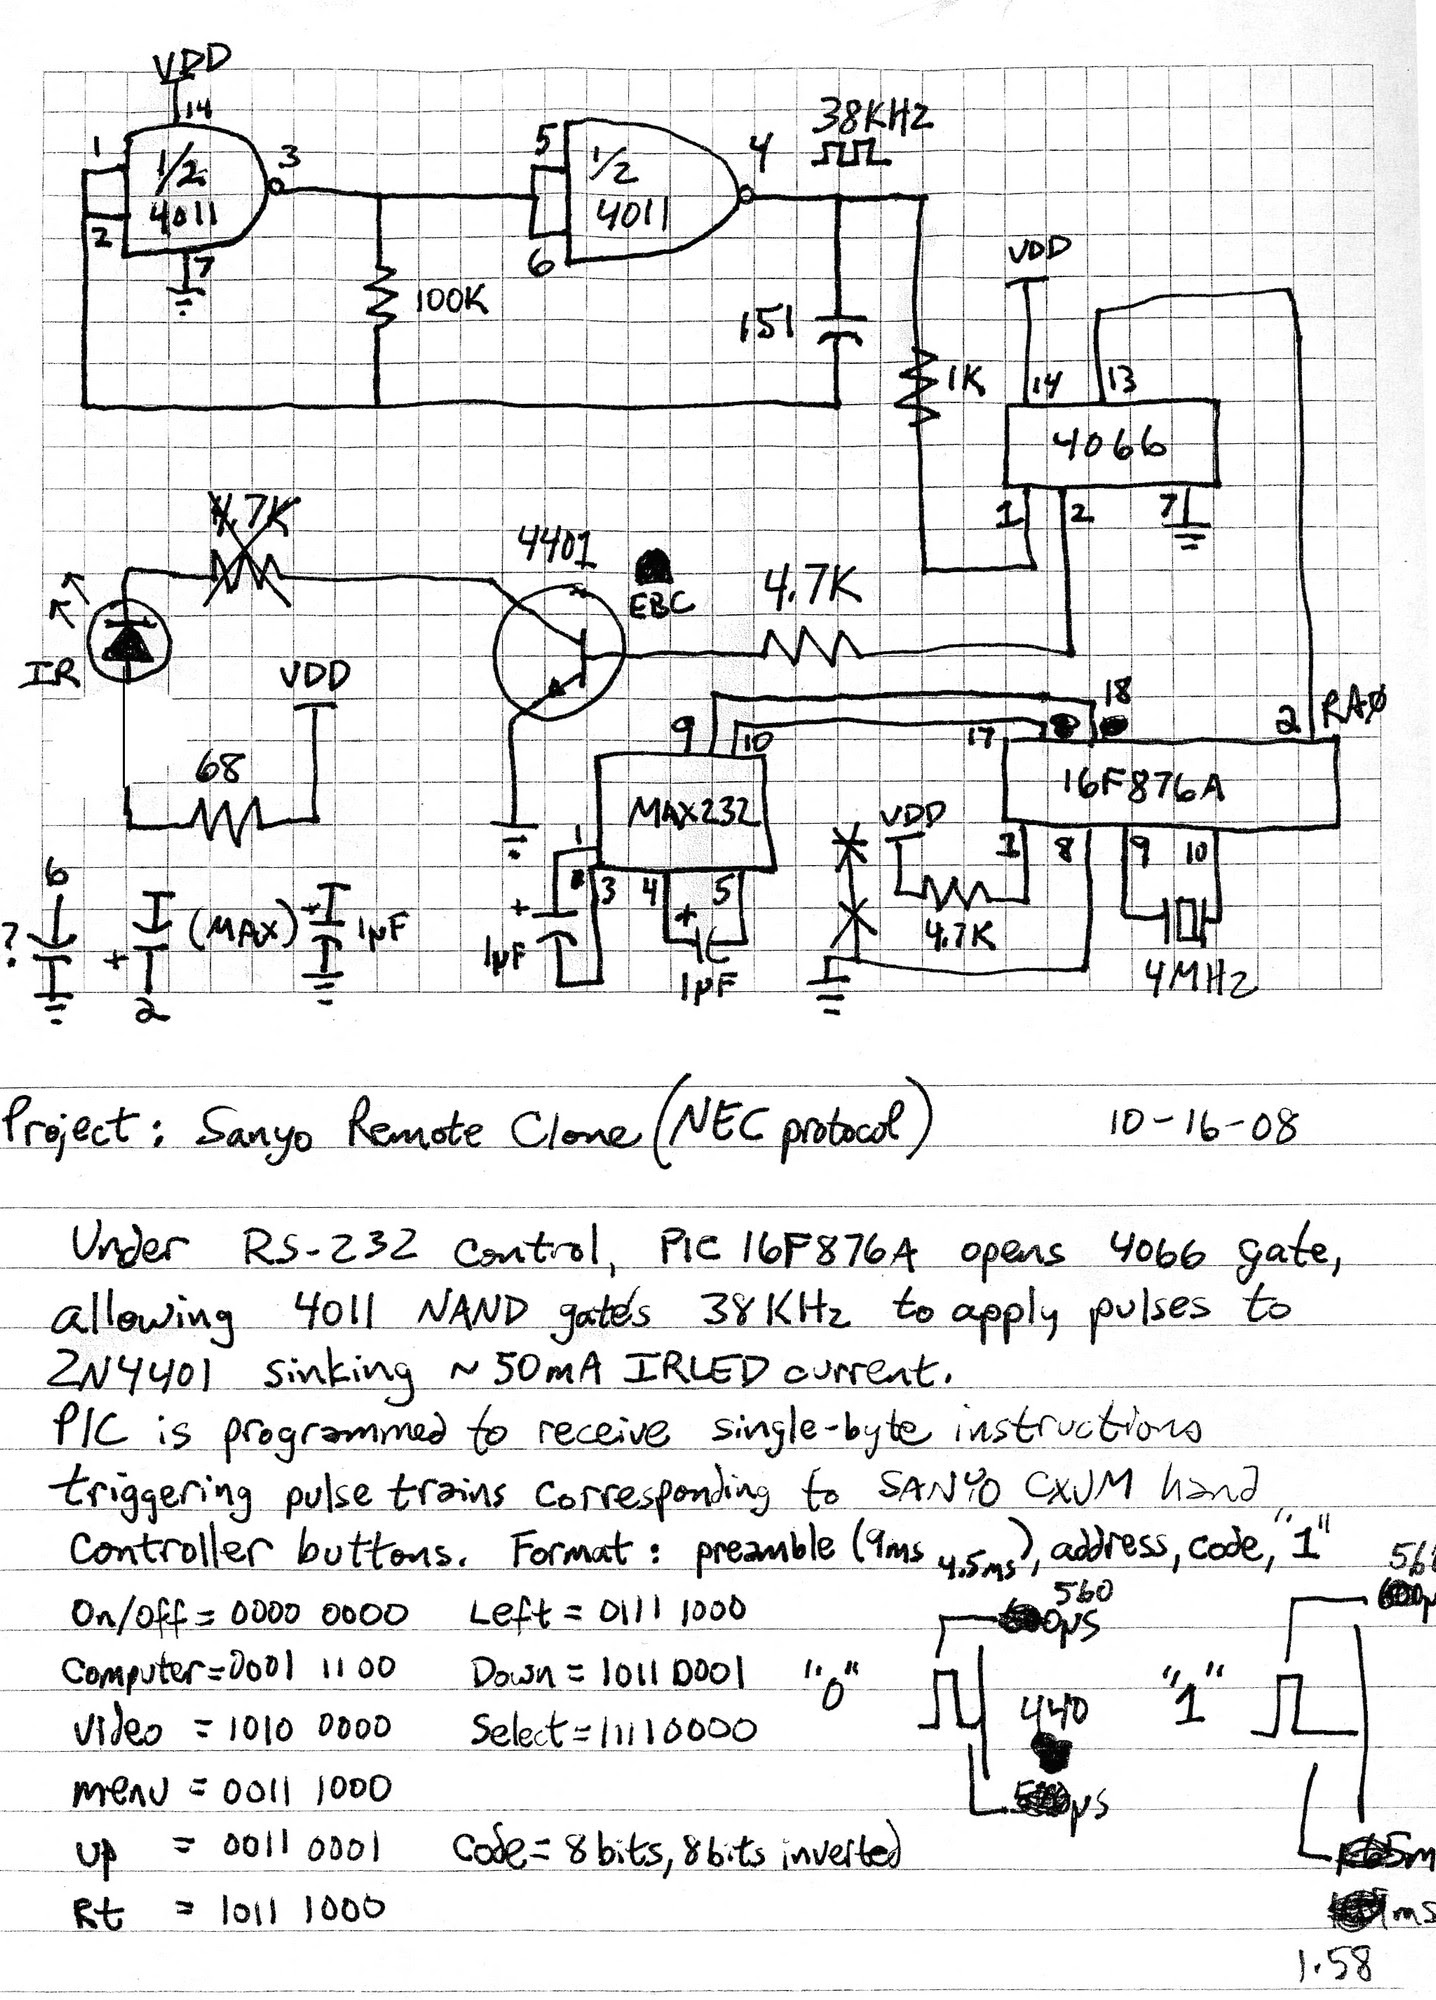 VDD
14
1
1/2
4011
3
2
7
100K
5
1/2
4011
6
4
38KHz
151
1K
VDD
14
13
4066
1
2
7
4.7K
IR
VDD
68
4401
EBC
4.7K
9
10
MAX232
1
3
4
5
1µF
1µF
17
18
2
RA0
16F876A
1
8
9
10
VDD
4.7K
4MHz
6
?
+
2
(MAX)
+
1µF
Project: Sanyo Remote Clone (NEC protocol) 10-16-08
Under RS-232 control, PIC 16F876A opens 4066 gate,
allowing 4011 NAND gate's 38KHz to apply pulses to
2N4401 sinking ~50mA IRLED current.
PIC is programmed to receive single-byte instructions
triggering pulse trains corresponding to SANYO CXJM hand
Controller buttons. Format: preamble (9ms 4.5ms), address, code, "1"
On/off = 0000 0000 Left = 0111 1000
Computer = 0001 1100 Down = 1011 0001
Video = 1010 0000 Select = 11110000
menu = 0011 1000
up = 0011 0001 Code = 8 bits, 8 bits inverted
Rt = 1011 1000
"0"
560
µs
440
µs
"1"
ms
1.58